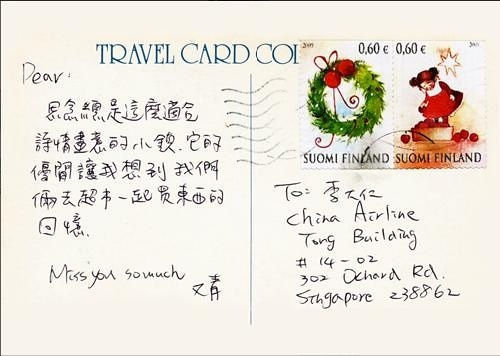 TRAVEL CARD COL
0,60 €
0,60 €
SUOMI FINLAND
SUOMI FINLAND
Dear:
思念總是這麼適合
詩情畫意的小鎮, 它的
優閒讓我想到我們
倆去超市一起買東西的
回憶.
Miss you so much
又青
To: 李大仁
China Airline
Tong Building
# 14-02
302 Ochard Rd.
Singapore 238862